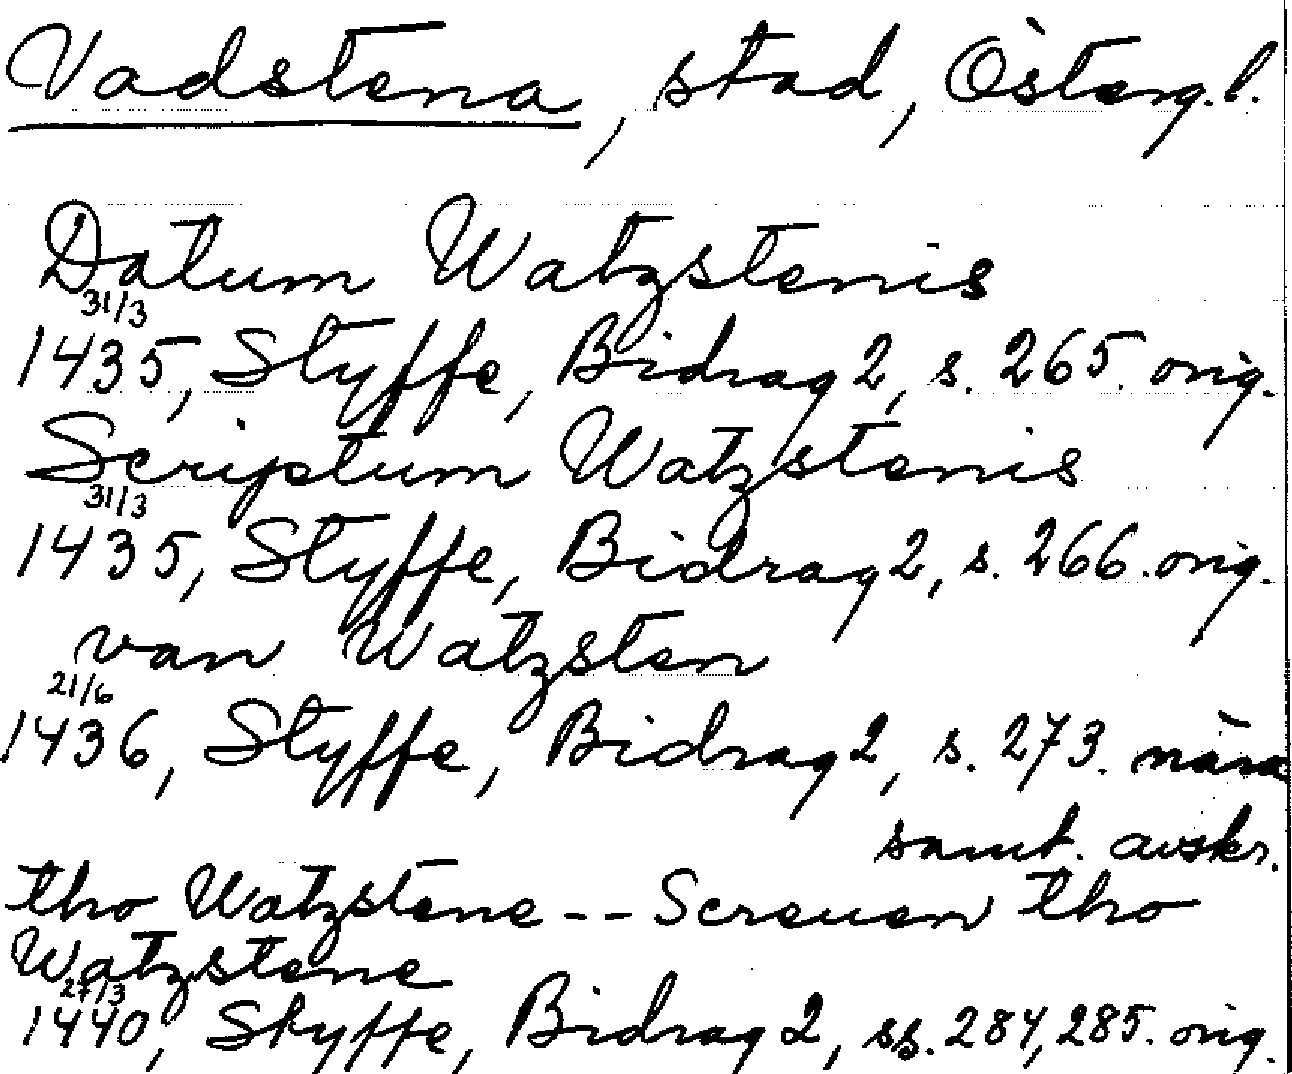 Vadstena, stad, Österg.l.
Datum Watzstenis
31/3
1435, Styffe, Bidrag 2, s. 265. orig.
Scriptum Watzstenis
31/3
1435, Styffe, Bidrag 2, s. 266. orig.
van Watzsten
21/6
1436, Styffe, Bidrag 2, s. 273. nära
samt. avskr.
tho Watzstene -- Screuen tho
Watzstene
27/3
1440, Styffe, Bidrag 2, ss. 284, 285. orig.